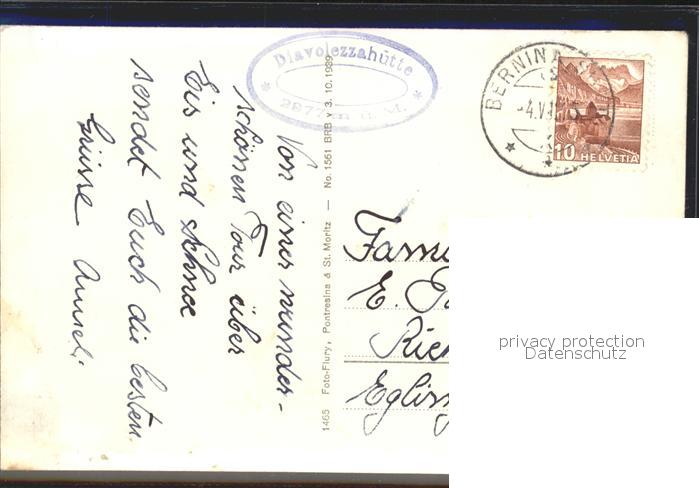 Diavolezzahütte
2977 m ü. M.
BERNINA
-4.V
10 HELVETIA
Von einer wunder-
schönen Tour über
Eis und Schnee
sendet Euch die besten
Grüsse Anneli
1465 Foto-Flury, Pontresina & St. Moritz — No. 1561 BRB v 3. 10. 1939
Fam
E.
Eglis
privacy protection
Datenschutz